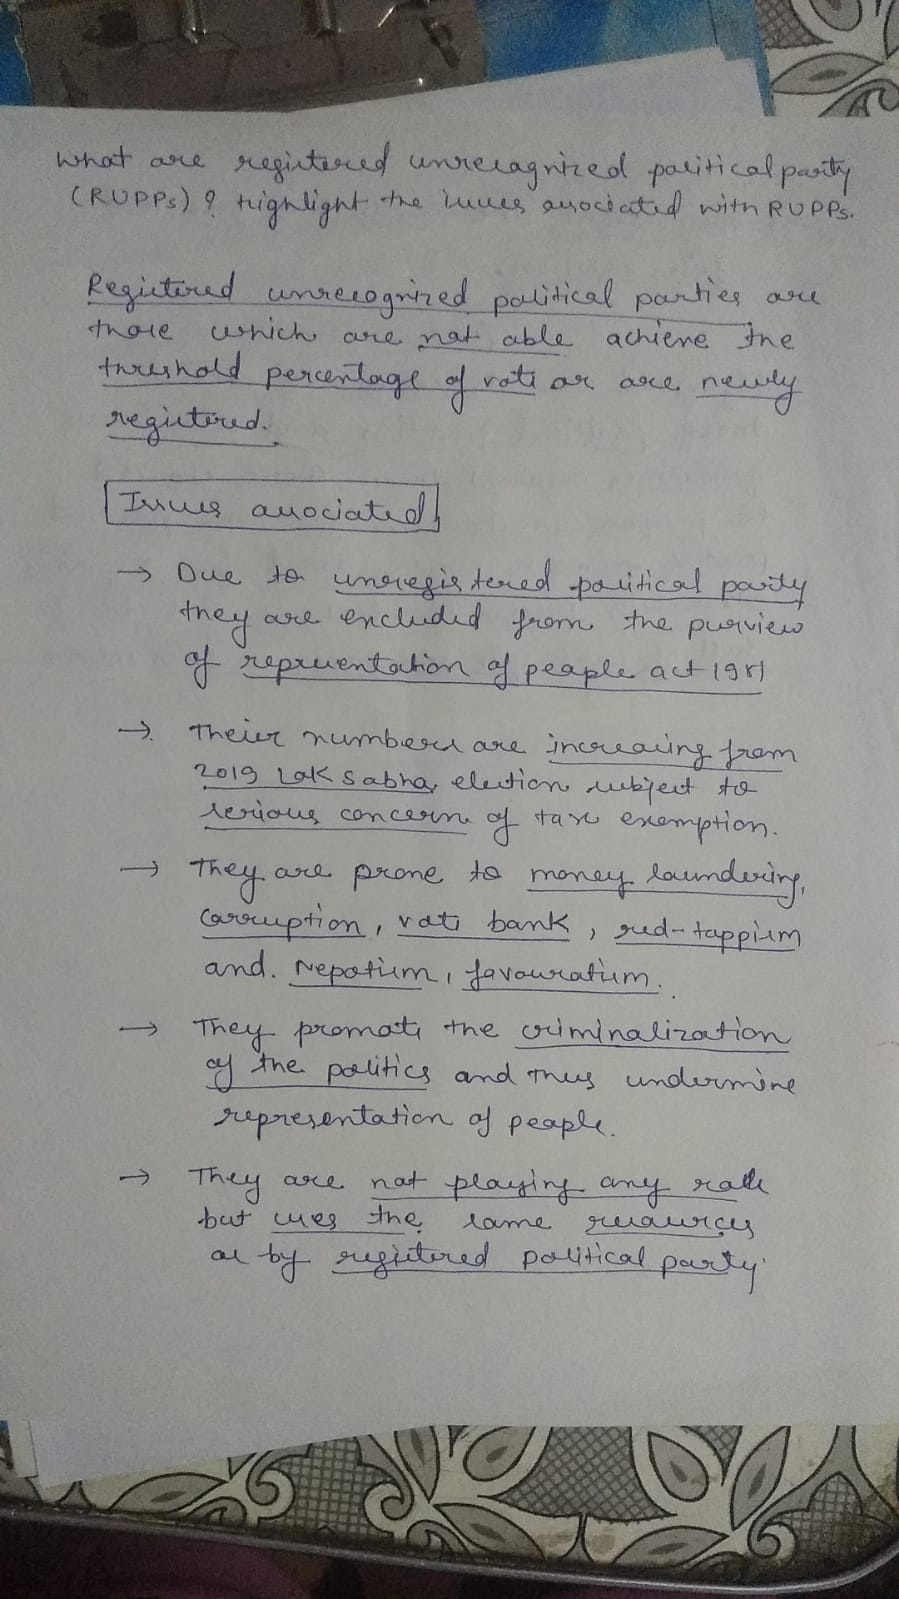 What are registered unrecognized political party
(RUPPs)? Highlight the issues associated with RUPPs.
Registered unrecognized political parties are
those which are not able achieve the
threshold percentage of vote or are newly
registered.
Issues associated
→ Due to unregistered political party
they are excluded from the purview
of representation of people act 1951
→ Their numbers are increasing from
2019 Lok Sabha election subject to
serious concern of tax exemption.
→ They are prone to money laundering,
Corruption, vote bank, red-tappism
and. Nepotism, favouratism.
→ They promote the criminalization
of the politics and thus undermine
representation of people.
→ They are not playing any role
but uses the same resources
as by registered political party.